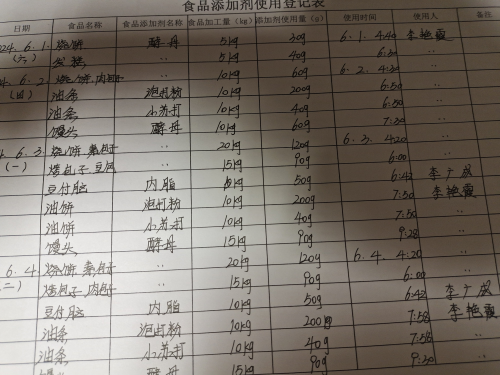 食品添加剂使用登记表
日期 食品名称 食品添加剂名称 食品加工量(kg) 添加剂使用量(g) 使用时间 使用人 备注
24. 6. 1. 烧饼 酵母 5kg 30g 6. 1. 4:40 李艳霞
(六) 发糕 〃 5kg 40g 6:30
6. 2. 烧饼.肉饼 〃 10kg 60g 6. 2. 4:30
油条 泡打粉 10kg 200g 6:50
油条 小苏打 10kg 40g 6:50
馒头 酵母 10kg 60g 7:30
6. 3. 烧饼 〃 20kg 120g 6. 3. 4:20
(一) 包子 〃 15kg 90g 6:00
豆付脑 内脂 50g 6:42 李广成
油饼 泡打粉 10kg 200g 7:50 李艳霞
油饼 小苏打 10kg 40g 7:50
馒头 酵母 15kg 90g 9:28
6. 4. 烧饼 〃 20kg 120g 6. 4. 4:20
二) 包子.肉包子 〃 15kg 90g 6:00
豆付脑 内脂 10kg 50g 6:42 李广成
油条 泡打粉 10kg 200g 7:58 李艳霞
油条 小苏打 10kg 40g 7:58
酵母 15kg 90g 9:30